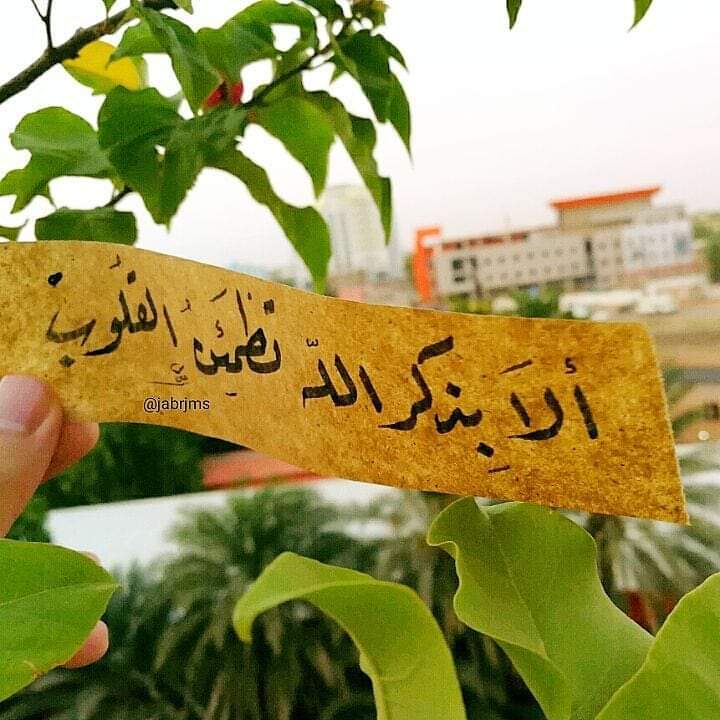 ألا بذكر الله تطمئن القلوب
@jabrjms